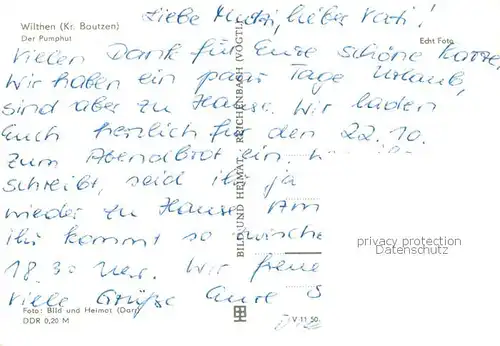 Liebe Mutti, lieber Vati!
Wilthen (Kr. Bautzen)
Der Pumphut
Echt Foto
Vielen Dank für Eure schöne Karte,
wir haben ein paar Tage Urlaub,
sind aber zu Hause. Wir laden
Euch herzlich für den 22.10.
zum Abendbrot ein.
schreibt, seid ihr ja
wieder zu Hause. Am
ihr kommt so zwische
18.30 Uhr. Wir freue
viele Grüße Eure S
BILD UND HEIMAT REICHENBACH (VOGTL)
privacy protection
Datenschutz
Foto: Bild und Heimat (Darr)
DDR 0,20 M
V 11 50